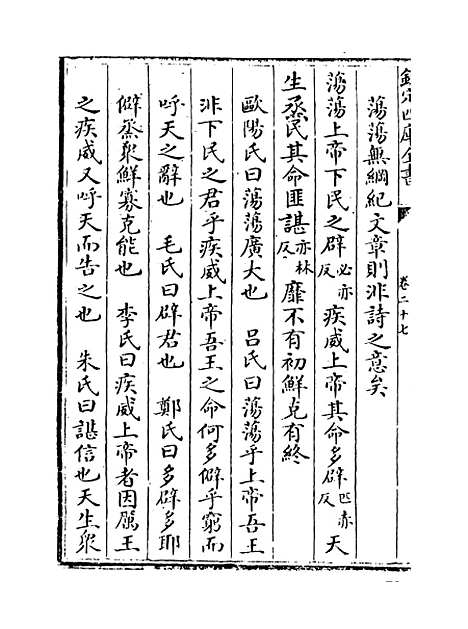 欽定四庫全書
卷二十七
蕩蕩無綱紀文章則非詩之意矣
蕩蕩上帝下民之辟必亦反疾威上帝其命多辟匹亦反天
生烝民其命匪諶亦林反靡不有初鮮克有終
歐陽氏曰蕩蕩廣大也 呂氏曰蕩蕩乎上帝吾王
非下民之君乎疾威上帝吾王之命何多僻乎窮而
呼天之辭也 毛氏曰辟君也 鄭氏曰多辟多邪
僻烝衆鮮寡克能也 李氏曰疾威上帝者因厲王
之疾威又呼天而告之也 朱氏曰諶信也天生衆